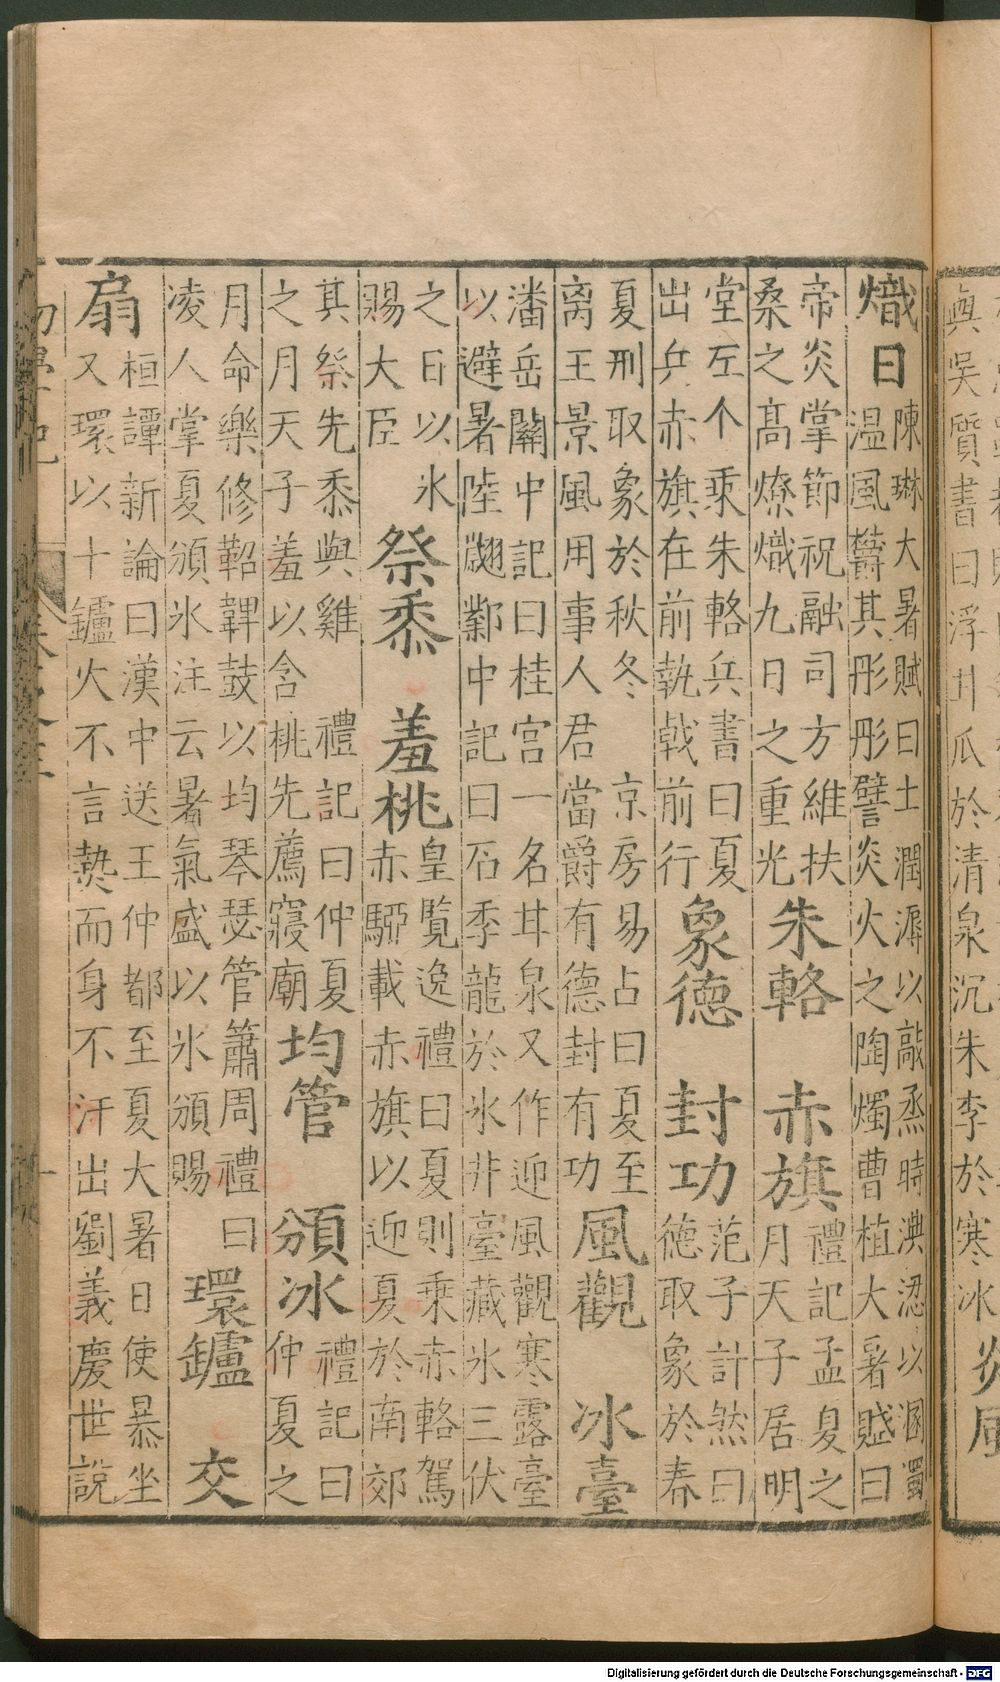 與吳質書曰浮甘瓜於清泉沉朱李於寒冰
熾日
陳琳大暑賦曰土潤溽以敲烝時淟涊以溷濁
温風鬱其彤彤譬炎火之陶燭曹植大暑賦曰
帝炎掌節祝融司方維扶
桑之髙燎熾九日之重光
朱輅 赤旗
禮記孟夏之
月天子居明
堂左个乘朱輅兵書曰夏
出兵赤旗在前執戟前行
象德 封功
范子計然曰
德取象於春
夏刑取象於秋冬 京房易占曰夏至
离王景風用事人君當爵有德封有功
風觀 冰臺
潘岳關中記曰桂宫一名甘泉又作迎風觀寒露臺
以避暑陸翽鄴中記曰石季龍於氷井臺藏氷三伏
之日以氷
賜大臣
祭黍 羞桃
皇覽逸禮曰夏則乘赤輅駕
赤䮘載赤旗以迎夏於南郊
其祭先黍與雞 禮記曰仲夏
之月天子羞以含桃先薦寢廟
均管 頒冰
禮記曰
仲夏之
月命樂修鞀鞞鼓以均琴瑟管簫周禮曰
凌人掌夏頒氷注云暑氣盛以氷頒賜
環鑪 交
扇
桓譚新論曰漢中送王仲都至夏大暑日使暴坐
又環以十鑪火不言熱而身不汗出劉義慶世說
Digitalisierung gefördert durch die Deutsche Forschungsgemeinschaft - DFG